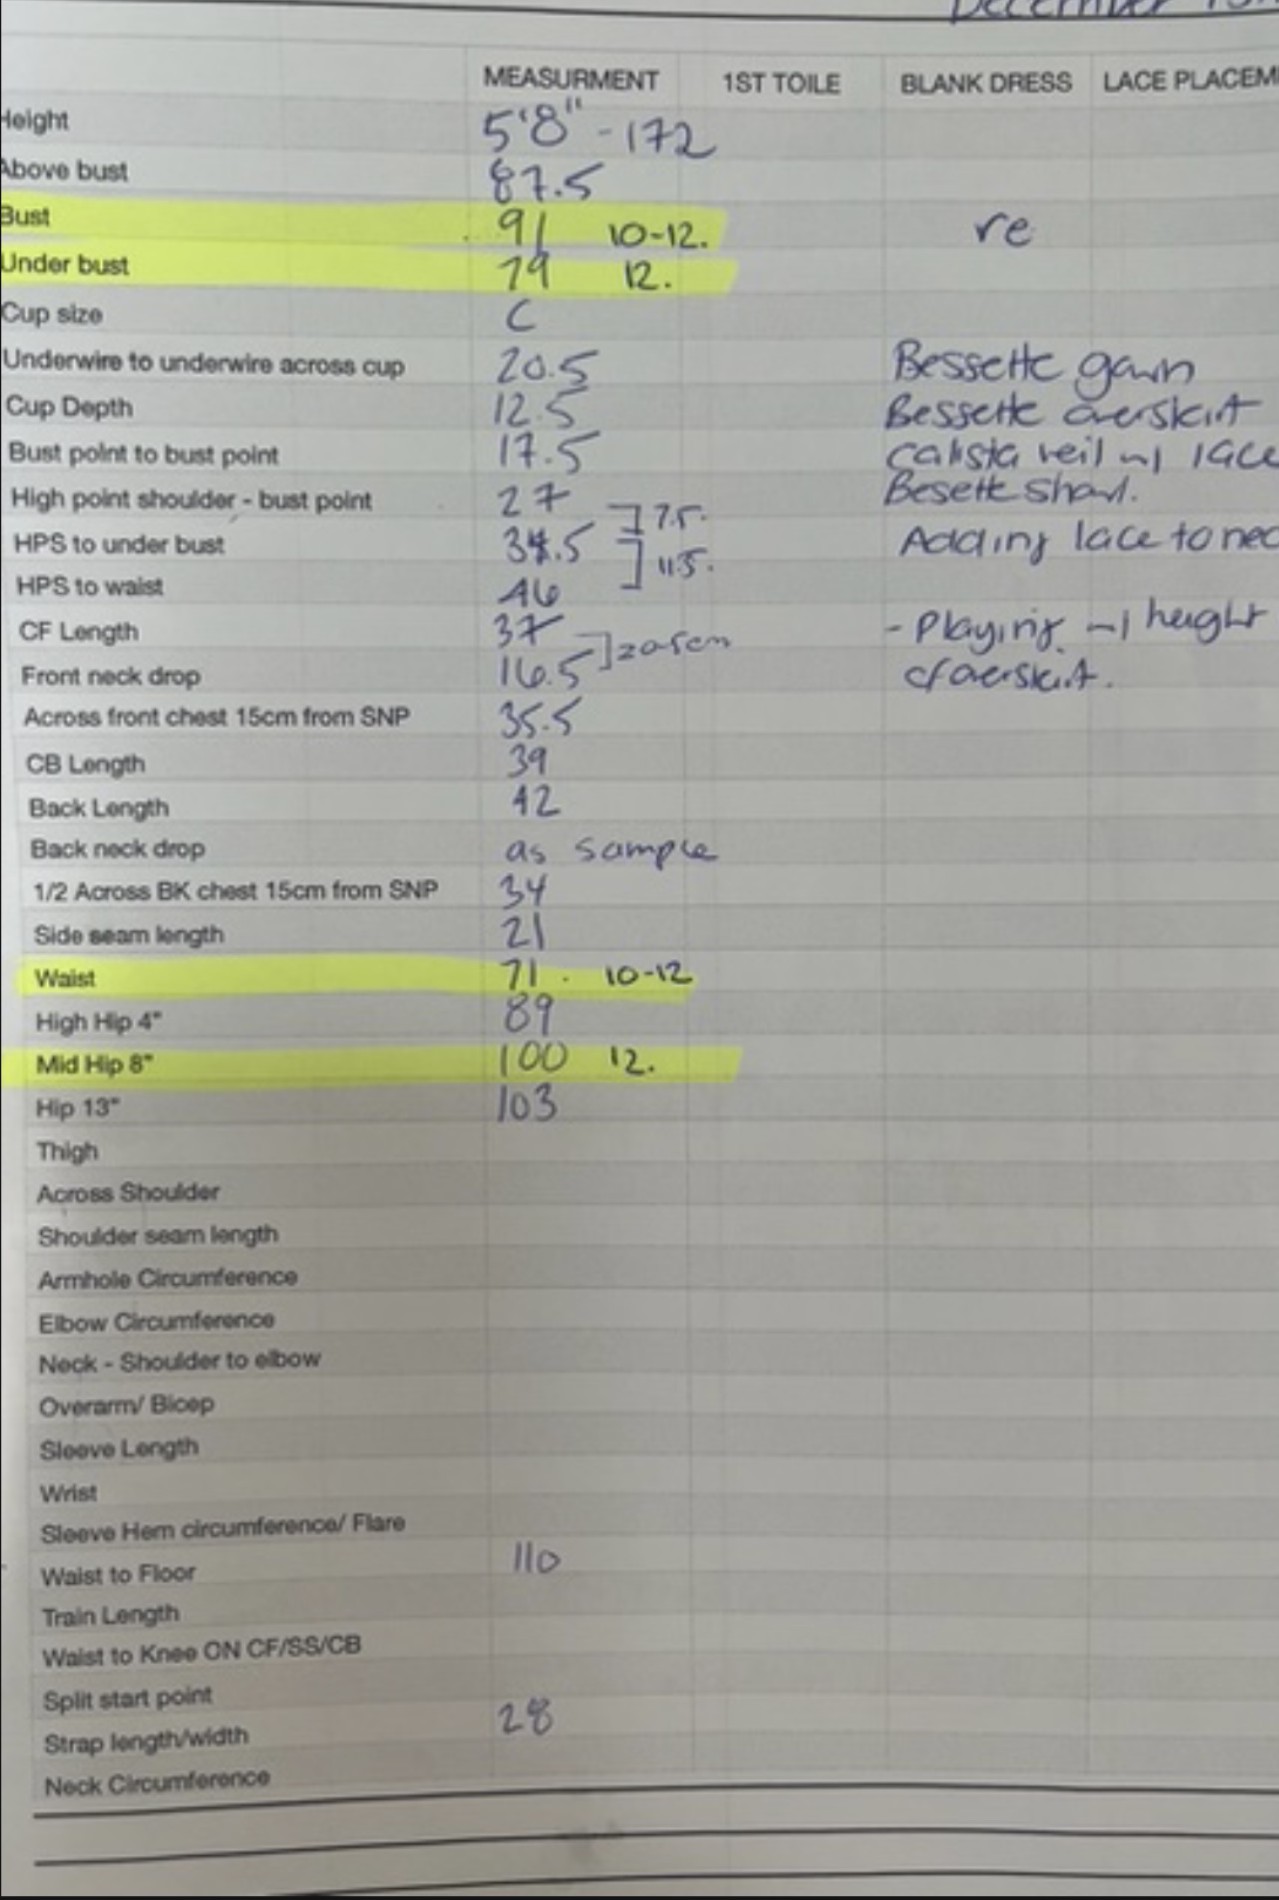 December
MEASURMENT 1ST TOILE BLANK DRESS LACE PLACEM
Height 5'8" - 172
Above bust 87.5
Bust 91 10-12. re
Under bust 79 12.
Cup size C
Underwire to underwire across cup 20.5 Bessette gown
Cup Depth 12.5 Bessette overskirt
Bust point to bust point 17.5 calista veil w/ lace
High point shoulder - bust point 27 Besette shawl.
] 7.5.
HPS to under bust 34.5 Adding lace to nec
] 11.5.
HPS to waist 46
CF Length 37 - Playing w/ height
] 20.5cm
Front neck drop 16.5 of overskirt.
Across front chest 15cm from SNP 35.5
CB Length 39
Back Length 42
Back neck drop as sample
1/2 Across BK chest 15cm from SNP 34
Side seam length 21
Waist 71. 10-12
High Hip 4" 89
Mid Hip 8" 100 12.
Hip 13" 103
Thigh
Across Shoulder
Shoulder seam length
Armhole Circumference
Elbow Circumference
Neck - Shoulder to elbow
Overarm/ Bicep
Sleeve Length
Wrist
Sleeve Hem circumference/ Flare
Waist to Floor 110
Train Length
Waist to Knee ON CF/SS/CB
Split start point
Strap length/width 28
Neck Circumference